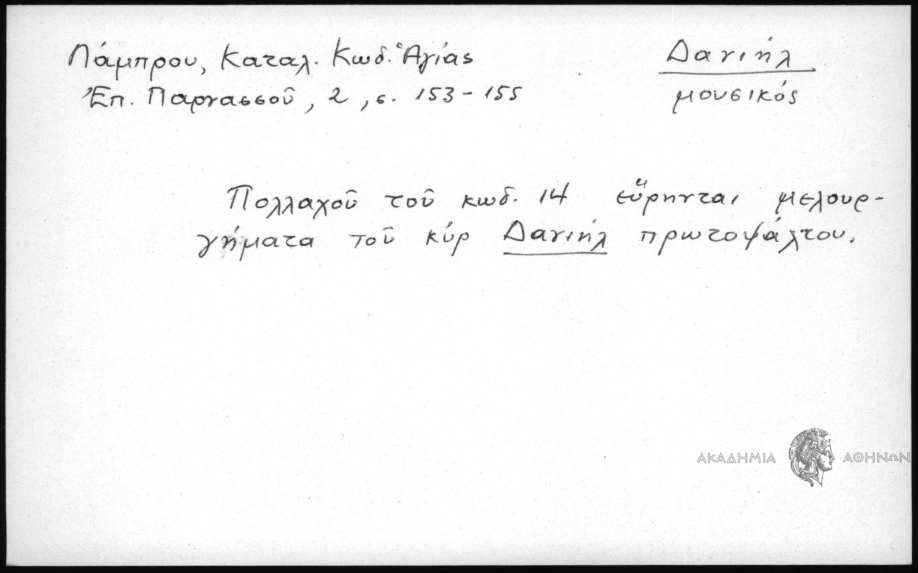 Λάμπρου, Καταλ. Κωδ. Ἁγίας
Ἐπ. Παρνασσοῦ, 2, σ. 153-155
Δανιήλ
μουσικός
Πολλαχοῦ τοῦ κωδ. 14 εὕρηνται μελουρ-
γήματα τοῦ κύρ Δανιήλ πρωτοψάλτου.
ΑΚΑΔΗΜΙΑ ΑΘΗΝΩΝ